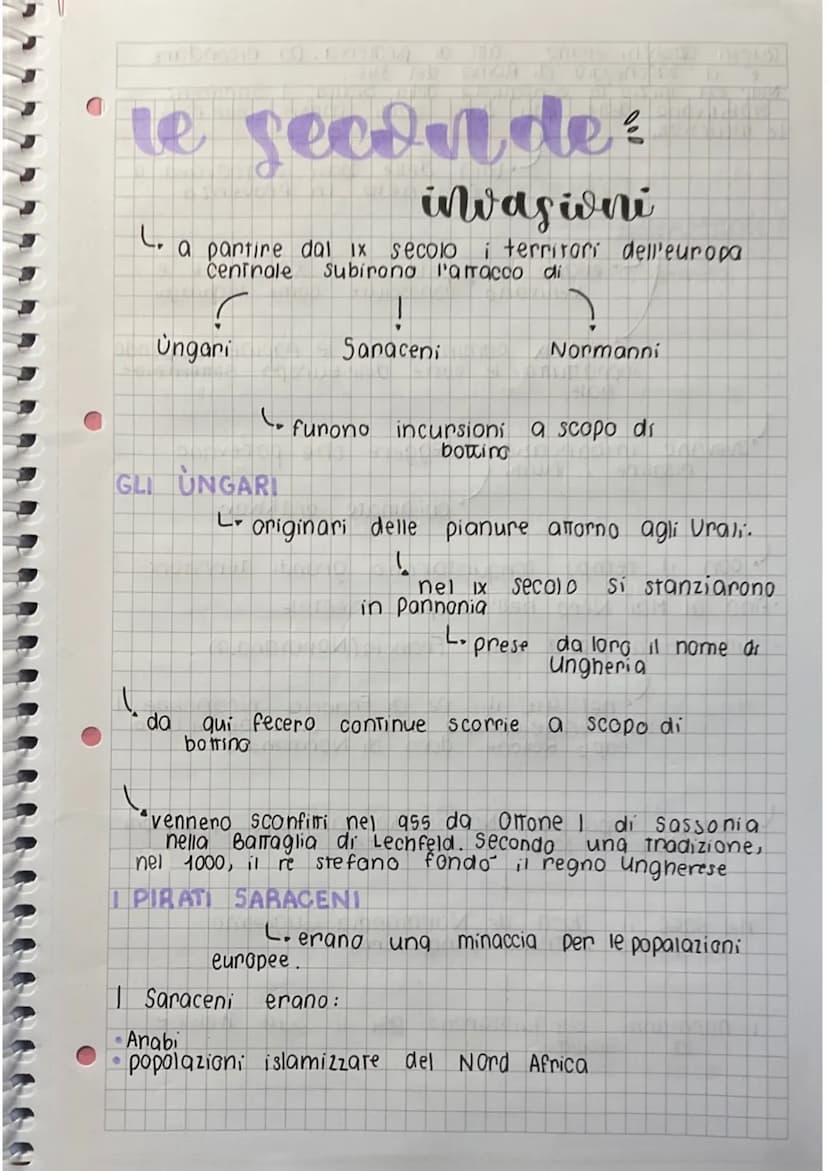 le seconde
invasioni
a partire dal IX secolo i territori dell'europa
centrale subirono l'attacco di
Ùngari Saraceni Normanni
furono incursioni a scopo di
bottino
GLI ÙNGARI
originari delle pianure attorno agli Urali.
nel IX secolo si stanziarono
in Pannonia
prese da loro il nome di
Ungheria
da qui fecero continue scorrie a scopo di
bottino
venneno sconfitti nel 955 da Ottone I di Sassonia
nella Battaglia di Lechfeld. Secondo una tradizione,
nel 1000, il re stefano fondò il regno Ungherese
I PIRATI SARACENI
erano una minaccia per le popalazioni
europee.
I Saraceni erano:
• Arabi
• popolazioni islamizzate del Nord Africa